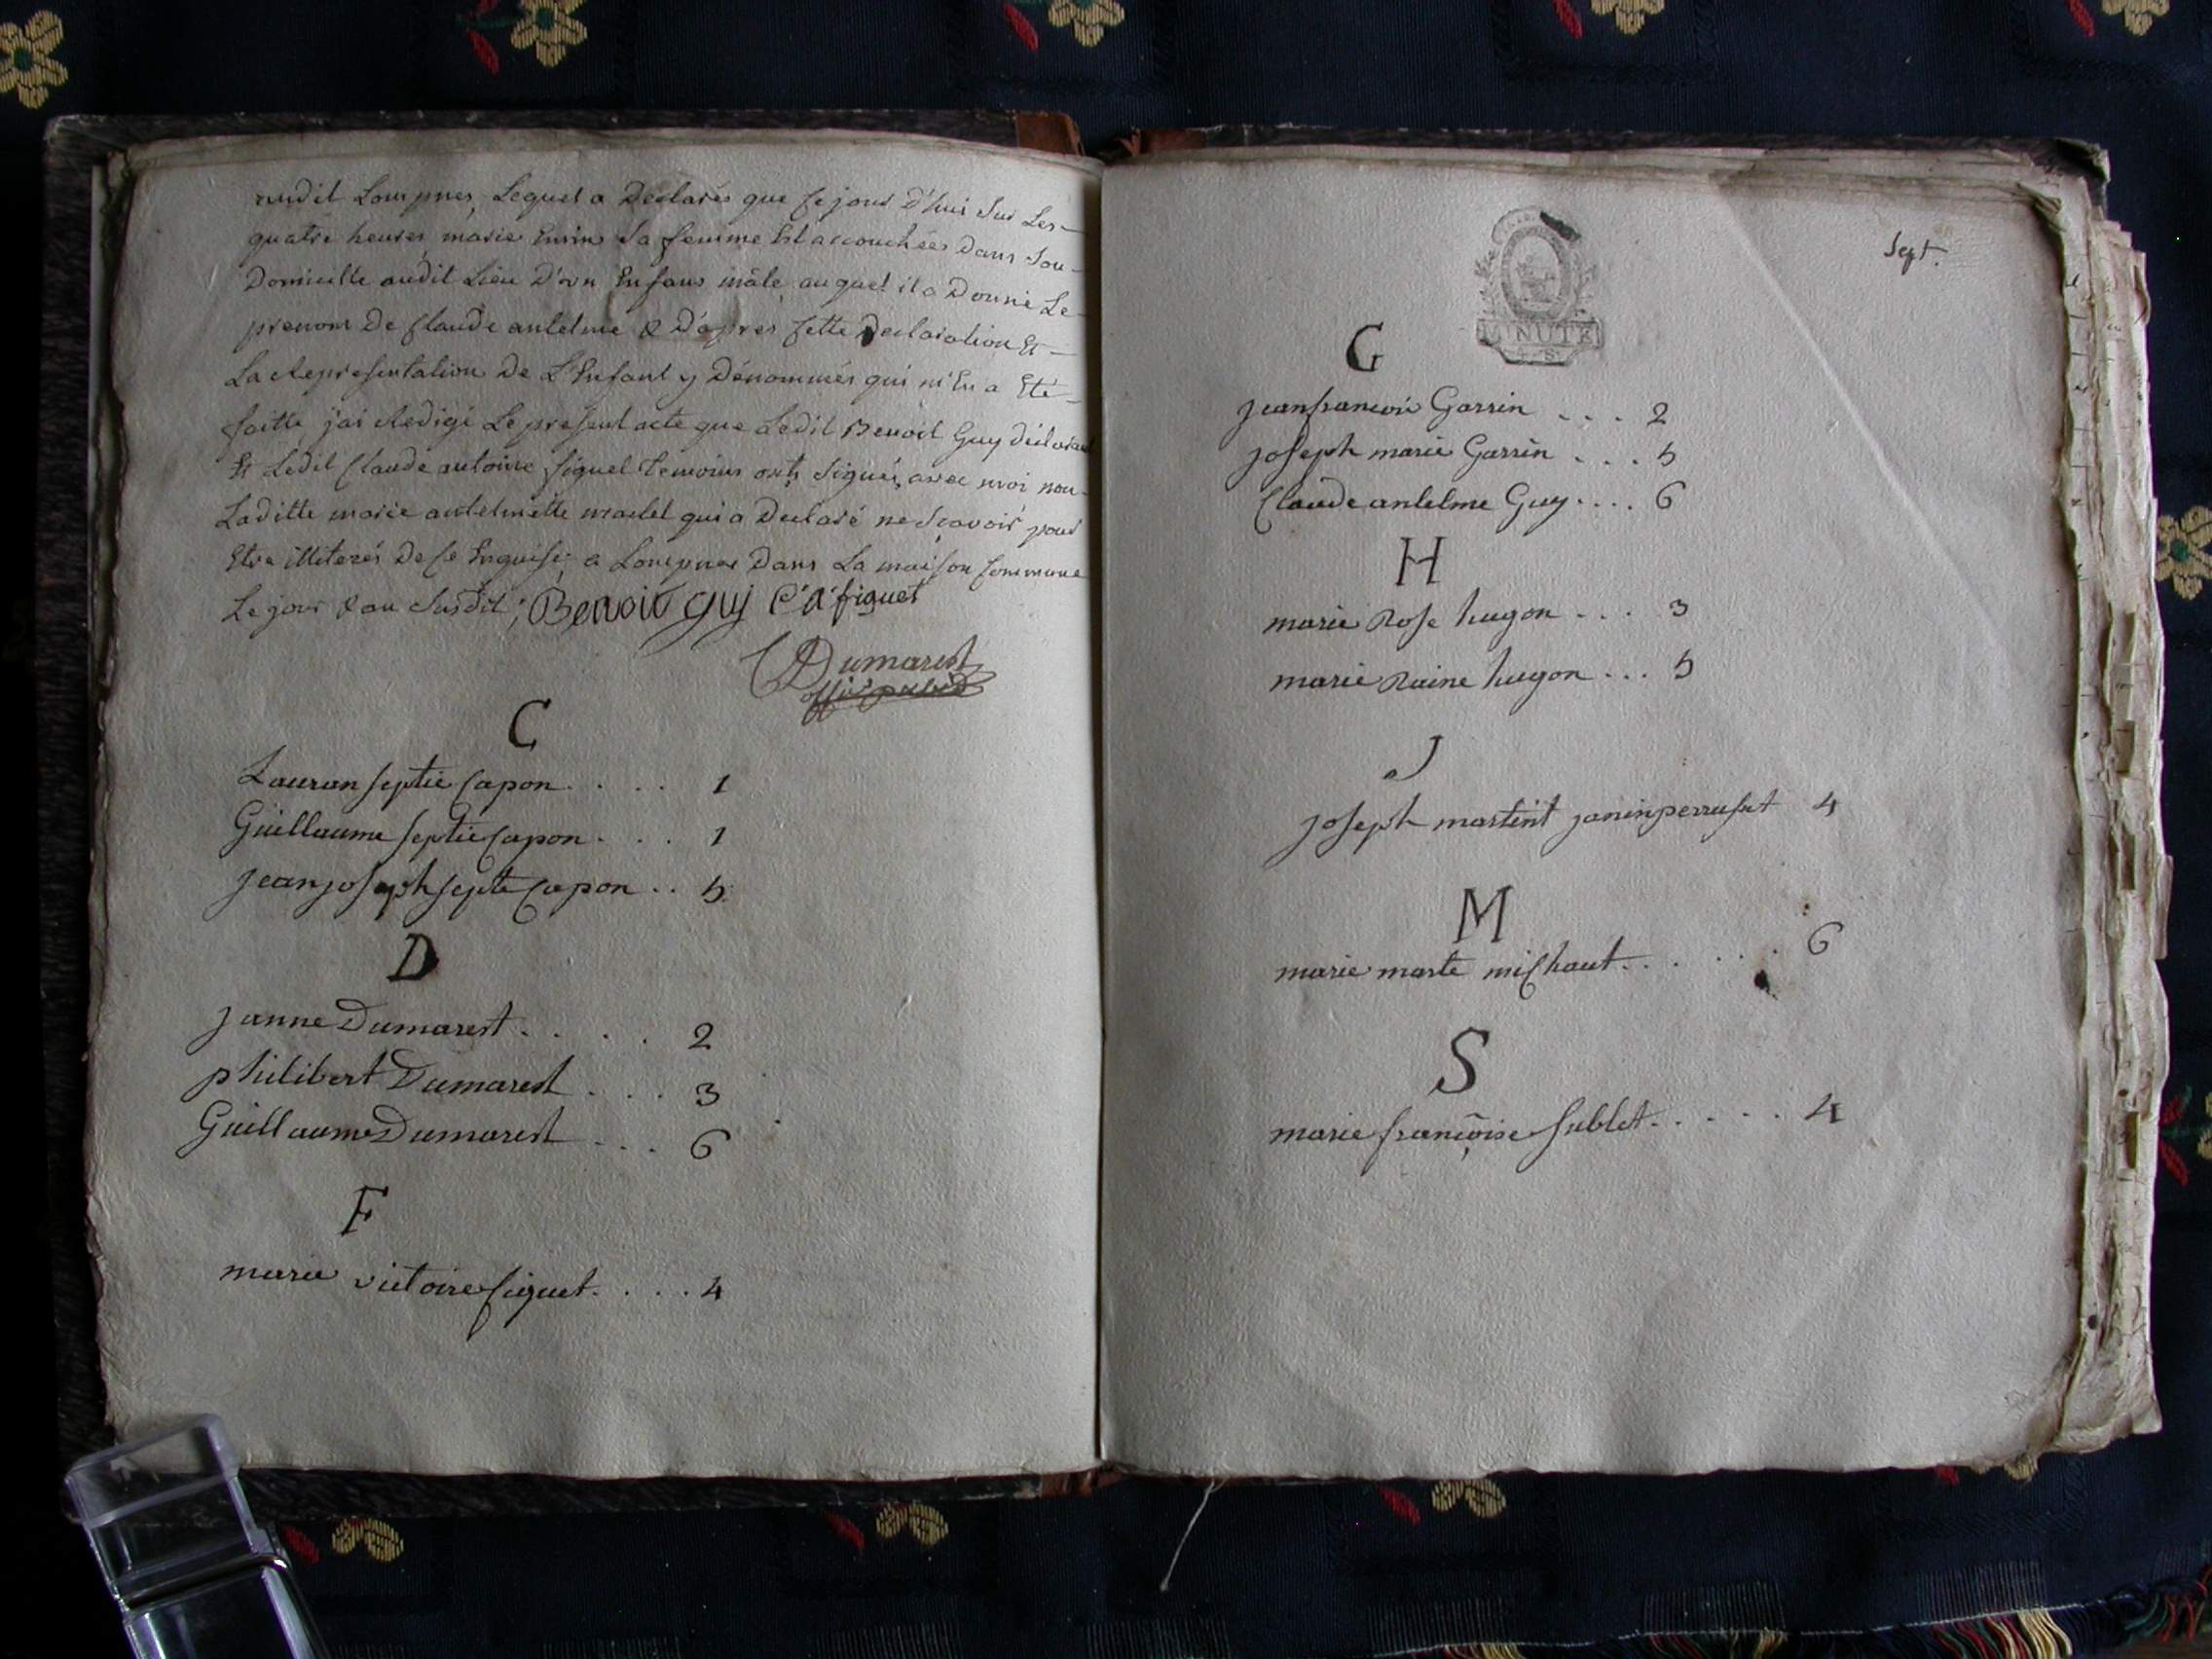 audit Lompnes, Lequel a Déclarés que Ce jourd'hui Sur Les
quatre heures, marie Sa femme Est accouchées Dans Son
Domicille audit Lieu D'un Enfans mâle auquel il a Donné Le
prenom De Claude antelme & D'apres Cette Declaration Et
La Representation De L'Enfant y Dénommés qui m'En a Eté
faitte j'ai Redigé Le present acte que Ledit Benoit Guy déclarant
Et Ledit Claude antoine figuet temoins onts Signés, avec moi non
Laditte marie antelmette qui a Declaré ne Scavoir pour
Etre illiterés De Ce Enquise a Lompnes Dans La maison Commune
Le jour & an Susdit; Benoit guy C A figuet
Dumarest
offic public
C
Lauran septie Capon. . . . 1
Guillaume septie Capon . . . 1
jean joseph septe Capon . . 5
D
janne Dumarest . . . . 2
philibert Dumarest . . . 3
Guillaume Dumarest . . . 6
F
marie victoire figuet . . . . 4
Sept.
MINUTE
G
jean francois Garrin . . . . 2
joseph marie Garrin . . . 5
Claude antelme Guy . . . . 6
H
marie Rose hugon . . . 3
marie Raine hugon . . . 5
J
joseph martint janinperruset 4
M
marie marte miChaut . . . . . . 6
S
marie françoise sublet . . . . . 4